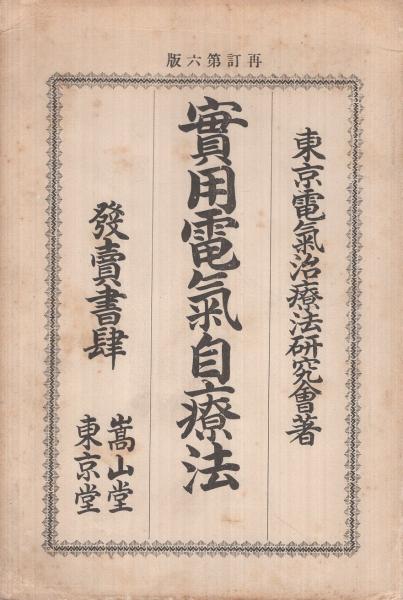 再訂第六版
東京電氣治療法研究會著
實用電氣自療法
發賣書肆
嵩山堂
東京堂